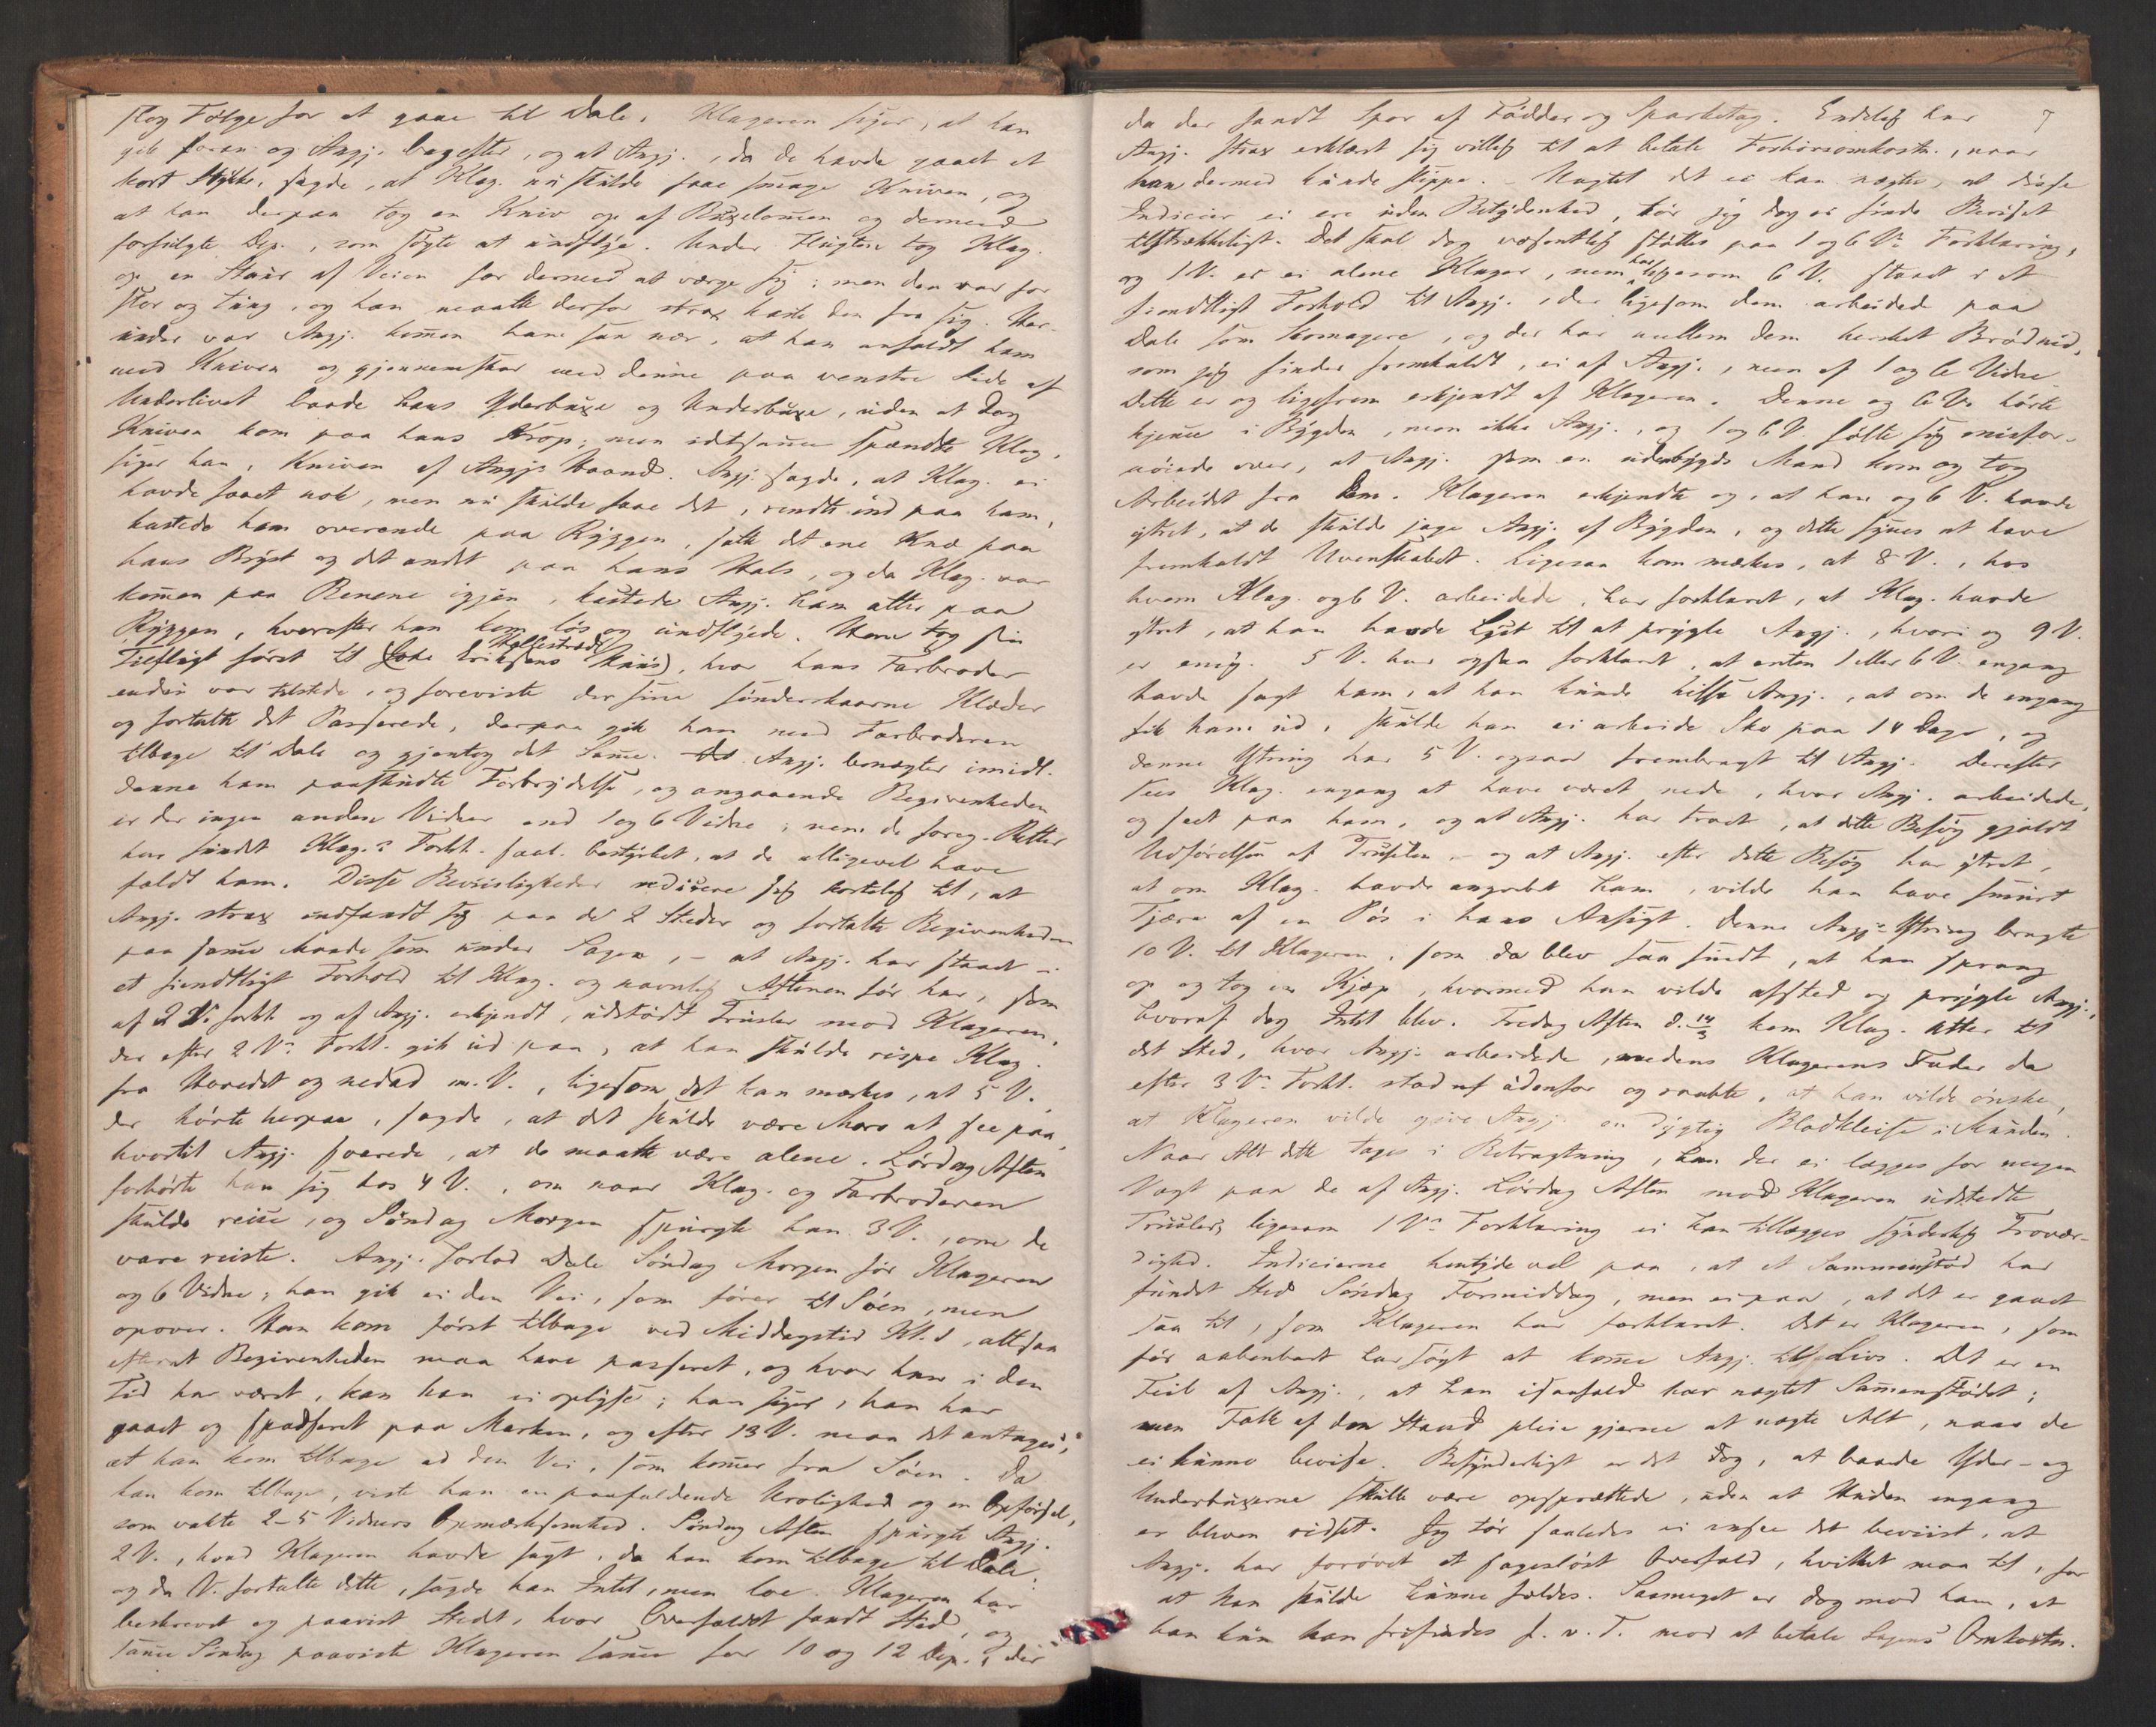 slog Følge for at gaae til Dale. Klageren siger, at han
gik foran og Angj. bagefter, og at Angj., da de havde gaaet et
kort Stykke, sagde, at Klag. nu skulde faae smage Kniven, og
at han derpaa tog en Kniv op af Buxelommen og dermed
forfulgte Dep., som søgte at undflye. Under Flugten tog Klag.
op en Staur af Veien for dermed at værge sig; men den var for
stor og tung, og han maatte derfor strax kaste den fra sig. Her-
under var Angj. kommen ham saa nær, at han anfaldt ham
med Kniven og gjennemskar med denne paa venstre Side af
Underlivet baade hans Yderbuxe og Underbuxe, uden at dog
Kniven kom paa hans Krop; men idetsamme spændte Klag.,
siger han, Kniven af Angjs Haand. Angj. sagde, at Klag. ei
havde faaet nok, men nu skulde faae det, rendte ind paa ham,
kastede ham overende paa Ryggen, satte det ene Knæ paa
hans Bryst og det andet paa hans Hals, og da Klag. var
kommen paa Benene igjen, kastede Angj. ham atter paa
Ryggen, hvorefter han kom løs og undflyede. Han tog sin
Tilflugt først til (Eriksens Huus), hvor hans Farbroder
endnu var tilstede, og foreviste der sine sønderskaarne Klæder
og fortalte det Passerede, derpaa gik han med Farbroderen
tilbage til Dale og gjentog det Samme. Angj. benægter imidl.
denne ham paasigtede Forbrydelse, og angaaende Begivenheden
er der ingen andre Vidner end 1 og 6 Vidne; men de foreg. Retter
har fundet Klag.s Forkl. saal. bestyrket, at de alligevel have
fældt ham. Disse Beviisligheder reducere sig korteligt til, at
Angj. strax indfandt sig paa de 2 Steder og fortalte Begivenheden
paa samme Maade som under Sagen, - at Angj. har staaet i
et fiendtligt Forhold til Klag. og navnlig Aftenen før har, som
af 2 V. forkl. og af Angj. erkjendt, udstødt Trusler mod Klageren,
der efter 2 Vs Forkl. gik ud paa, at han skulde rispe Klag.
fra Hovedet og nedad m.V., ligesom det kan mærkes, at 5 V.,
der hørte herpaa, sagde, at det skulde være Moro at see paa,
hvortil Angj. svarede, at de maatte være alene. Lørdag Aften
forhørte han sig hos 4 V., om naar Klag. og Farbroderen
skulde reise, og Søndag Morgen spurgte han 3 V., om de
vare reiste. Angj. forlod Dale Søndag Morgen før Klageren
og 6 Vidne; han gik ei den Vei, som fører til Søen, men
opover. Han kom først tilbage ved Middagstid Kl. 1, altsaa
efterat Begivenheden maa have passeret, og hvor han i den
Tid har været, kan han ei oplyse; han siger, han har
gaaet og spadseret paa Marken, og efter 13 V. maa det antages,
at han kom tilbage ad den Vei, som kommer fra Søen. Da
han kom tilbage, viste han en paafaldende Urolighed og en Opførsel,
som vakte 2-5 Vidners Opmærksomhed. Søndag Aften spurgte Angj.
2 V., hvad Klageren havde sagt, da han kom tilbage til Dale,
og da V. fortalte dette, sagde han Intet, men loe. Klageren har
beskrevet og paavist Stedet, hvor Overfaldet fandt Sted, og
samme Søndag paaviste Klageren samme for 10 og 12 Dep., der
7
da der fandt Spor af Fødder og Sparketag. Endelig har
Angj. strax erklæret sig villig til at betale Forhørsomkostn., naar
han dermed kunde slippe. - Uagtet det ei kan nægtes, at disse
Indicier ei ere uden Betydenhed, tør jeg dog ei finde Beviset
tilstrækkeligt. Det skal dog væsentlig støttes paa 1 og 6 Vs Forklaring,
og 1 V. er ei alene Klager, men har ligesom 6 V. staaet i et
fiendtligt Forhold til Angj., der ligesom dem arbeidede paa
Dale som Skomagere, og der har mellem dem hersket Brødnid,
som jeg finder fremkaldt, ei af Angj., men af 1 og 6 Vidne
Dette er og ligefrem erkjendt af Klageren. Denne og 6 V. hørte
hjemme i Bygden, men ikke Angj., og 1 og 6 V. følte sig misfor-
nøiede over, at Angj. som en udenbygds Mand kom og tog
Arbeidet fra dem. Klageren erkjendte og, at han og 6 V. havde
ytret, at de skulde jage Angj. af Bygden, og dette synes at have
fremkaldt Uvenskabet. Ligesaa kan mærkes, at 8 V., hos
hvem Klag. og 6 V. arbeidede, har forklaret, at Klag. havde
ytret, at han havde Lyst til at prygle Angj., hvori og 9 V.
er enig. 5 V. har ogsaa forklaret, at enten 1 eller 6 V. engang
havde sagt ham, at han kunde hilse Angj., at om de engang
fik ham ud, skulde han ei arbeide Sko paa 14 Dage, og
denne Ytring har 5 V. ogsaa frembragt til Angj. Derefter
sees Klag. engang at have været nede, hvor Angj. arbeidede,
og seet paa ham, og at Angj. har troet, at dette Besøg gjaldt
Udførelsen af Truselen, - og at Angj. efter dette Besøg har ytret,
at om Klag. havde angrebet ham, vilde han have smurt
Tjære af en Pøs i hans Ansigt. Denne Angj.s Ytring bragte
10 V. til Klageren, som da blev saa sindt, at han sprang
op og tog en Kjæp, hvormed han vilde afsted og prygle Angj.,
hvoraf dog Intet blev. Fredag Aften d. 14/3 kom Klag. atter til
det Sted, hvor Angj. arbeidede, medens Klagerens Fader da
efter 3 Vs Forkl. stod udenfor og raabte, at han vilde ønske,
at Klageren vilde give Angj. en dygtig Blodkleise i Munden.
Naar Alt dette tages i Betragtning, kan der ei lægges for megen
Vægt paa de af Angj. Lørdag Aften mod Klageren udstedte
Trusler, ligesom 1 Vs Forklaring ei kan tillægges synderlig Trovær-
dighed. Indicierne hentyde vel paa, at et Sammenstød har
fundet Sted Søndag Formiddag, men ei paa, at det er gaaet
saa til, som Klageren har forklaret. Det er Klageren, som
før aabenbart har søgt at komme Angj. tillivs. Det er en
Feil af Angj., at han isaafald har nægtet Sammenstødet;
men Folk af den Stand pleie gjerne at nægte Alt, naar de
ei kunne bevise. Besynderligt er det dog, at baade Yder- og
Underbuxerne skulle være opsprættede, uden at Huden engang
er bleven ridset. Jeg tør saaledes ei ansee det beviist, at
Angj. har forøvet et sagesløst Overfald, hvilket maa til, for
at han skulde kunne fældes. Saameget er dog mod ham, at
han kun kan frifindes f. v. T. mod at betale Sagens Omkostn.